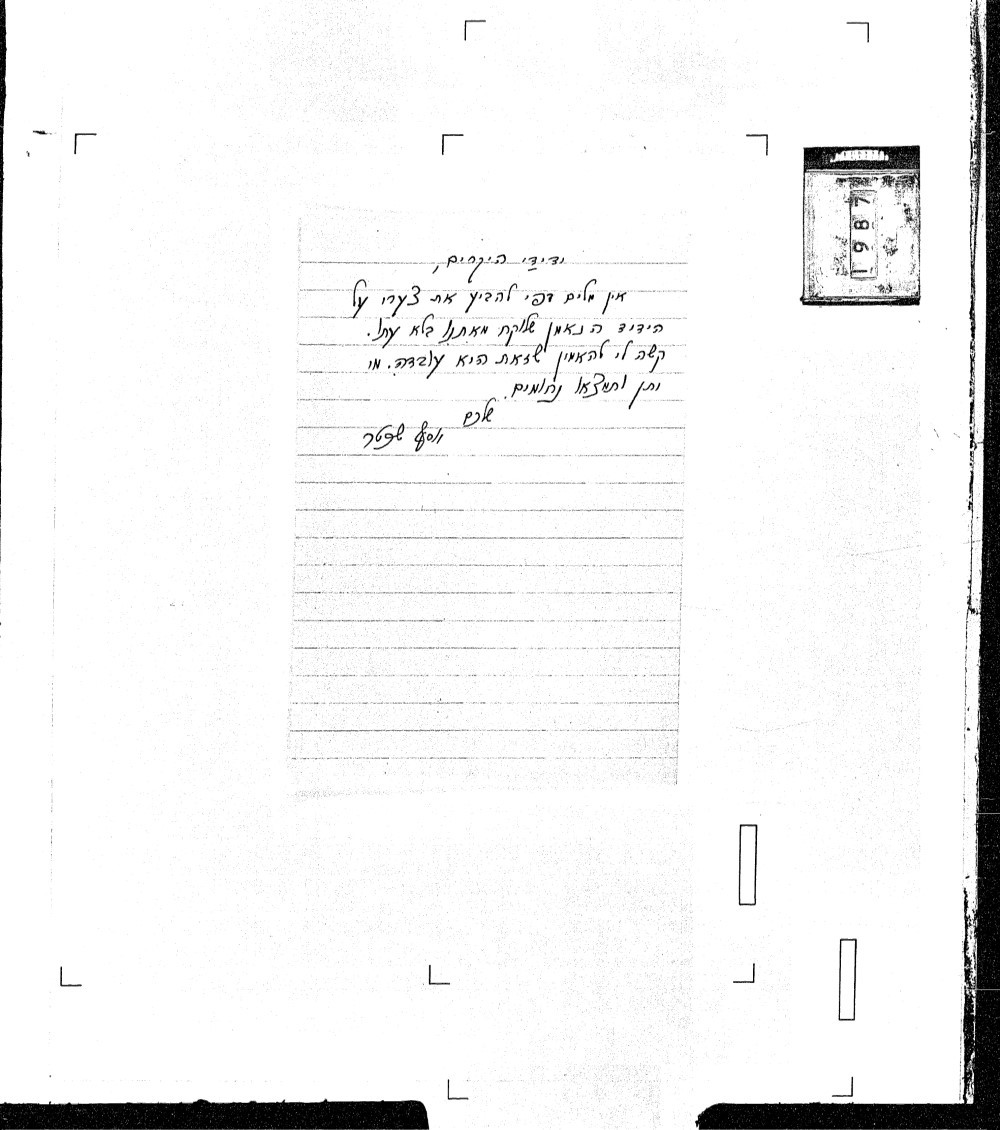 ידידַי היקרים,
אין מלים בפי להביע את צערי על
הידיד הנאמן שלוקח מאתנו בלא עתו.
קשה לי להאמין שזאת היא עובדה. מי
יתן ותמצאו נחומים.
שלכם
יוסף שכטר
1987